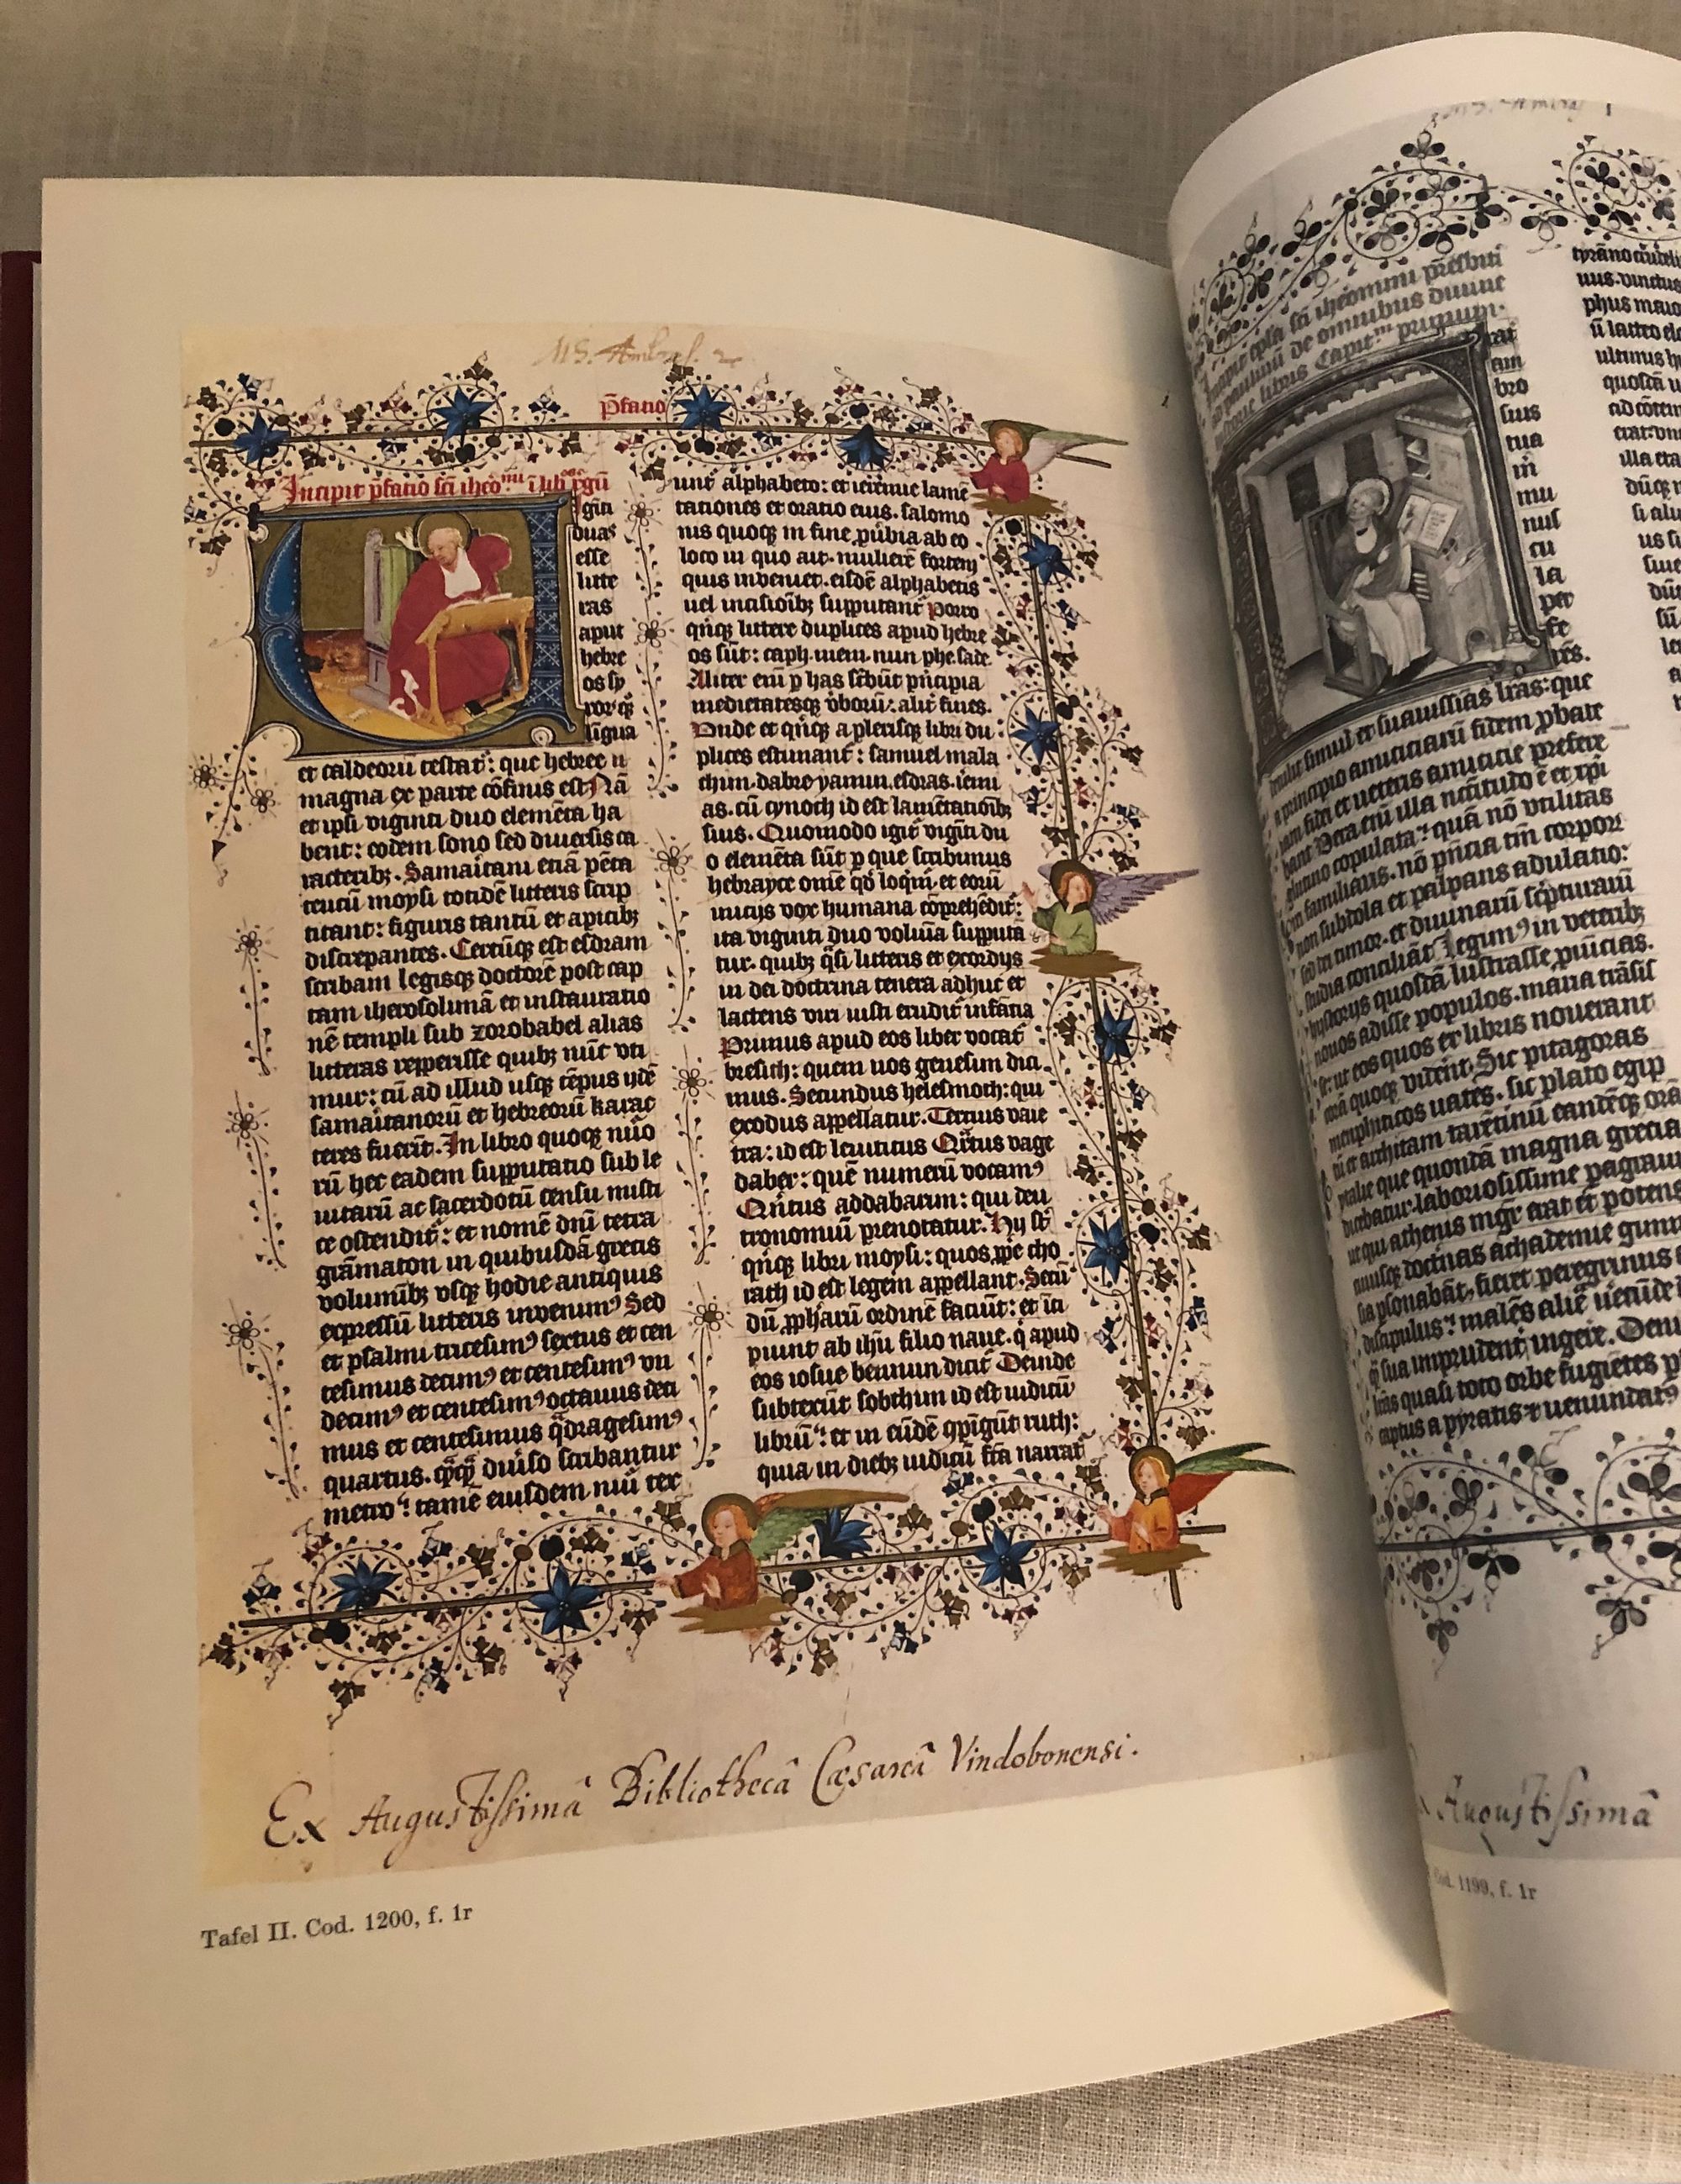 MS. Ambras. 2
p̄fatio
Incipit p̄fatio sc̄i ihero^mi ī lib^o regū
iginti
duas
esse
litte
ras
aput
hebre
os sy
ror̄ q̄
ligua
et caldeorū testat᷑: que hebree li
magna ex parte cōfinis est Nā
et ipsi viginti duo elemēta ha
bent: eodem sono sed diuersis ca
racterib₃. Samaritani etiā pēta
teucū moysi totidē litteris scrip
titant: figuris tantū et apicib₃
discrepantes. Certūq₃ est esdram
scribam legisq₃ doctorē post cap
tam iherosolimā et instauratio
nē templi sub zorobabel alias
litteras repperisse quib₃ nūc vti
mur: cū ad illud usq₃ tēpus ydē
samaritanorū et hebreorū karac
teres fuerīt. In libro quoq₃ nūo
rū hec eadem supputatio sub le
uitarū ac sacerdotū censu misti
ce ostendit᷑: et nomē dn̄i tetra
grāmaton in quibusdā grecis
volumīb₃ vsq₃ hodie antiquis
expressū litteris inuenim᷒ Sed
et psalmi tricesim᷒ sextus et cen
tesimus decim᷒ et centesim᷒ vn
decim᷒ et centesim᷒ octauus deci
mus et centesimus q̄dragesim᷒
quartus. q̄q̄ diuīso scribantur
metro: tamē eiusdem nūi tex
unt᷑ alphabeto: et ieremie lamē
tationes et oratio eius. salomo
nis quoq₃ in fine puībia ab eo
loco in quo ait. mulierē fortem
quis inueniet. eisdē alphabetis
uel incisioīb₃ supputant᷑ Porro
qīq₃ littere duplices apud hebre
os sūt: caph. mem. nun. phe. sade.
Aliter eni p has scībūt pīncipia
medietatesq₃ v̄borū: alit᷑ fines.
Vnde et qīq₃ a plerisq₃ libri du
plices estimant᷑: samuel mala
chim. dabre yamin. esdras. iemi
as. cū cynoth id est lamētatioīb₃
suis. Quomodo igit᷑ vigīti du
o elemēta sūt p que scribimus
hebrayce om̄e qd̄ loqim᷑. et eorū
inicijs vox humana cōprehēdit᷑:
ita viginti duo volūia supputā
tur. quib₃ q̄si litteris et exordijs
in dei doctrina tenera adhuc et
lactens viri iusti erudit᷑ infātia
Primus apud eos liber vocat᷑
bresith: quem nos genesim dici
mus. Secundus helesmoth: qui
exodus appellatur. Tertius vaie
tra: id est leuiticus Qr̄tus vage
daber: quē numerū vocam᷒
Qīntus addabarim: qui deu
tronomiū prenotatur. Hy sūt
qīq₃ libri moysi: quos p̄pe tho
rath id est legem appellant. Secū
dū pphetarū ordinē faciūt: et īci
piunt ab ihū filio naue. q̄ apud
eos iosue bennun dicit᷑ Deinde
subterūt sobthim id est iudicū
librū: et in eūdē cōpīgūt ruth:
quia in dieb₃ iudicū fc̄a narrat᷑
Ex Augustissimâ Bibliothecâ Cæsareâ Vindobonensi.
Tafel II. Cod. 1200, f. 1r
Incipit epl̄a sc̄i iheronimi presbiti
ad paulinū de omnibus diuine
historie libris Capit^m primum.
rat
am
bro
sius
tua
in
mu
nus
cu
la
per
fe
rēs.
tulit simul et suauissias lr̄as: que
a principio amiciciarū fidem pbate
iam fidei et ueteris amicicie prefere
bant Vera eni illa nc̄itudo ē et xpī
glutino copulata: quā nō vtilitas
rei familiaris. nō pn̄cia tm̄ corporū
non subdola et palpans adulatio:
sed dei timor. et diuinarū sc̄pturarū
studia conciliāt Legim᷒ in veterib₃
hystorijs quosdā lustrasse puīcias.
nouos adisse populos. maria trāsis
se: ut eos quos ex libris nouerant
corā quoq₃ viderēt. Sic pitagoras
memphiticos uates. sic plato egip
tū et architam tarentinū eandēq₃ orā
ytalie que quondā magna grecia
dicebatur. laboriosissime pagrauit
ut qui athenis mgr̄ erat et potens
cuiusq₃ doctrinas achademie gimn
sia psonabāt, fieret peregrinus
discipulus: malēs aliē uerecūde
q̄ sua impudent᷑ ingere. Deni
lr̄as quasi toto orbe fugiētes
captus a pyratis et uenundat᷒
tyrāno crudeli
uus. vinctus
phus maio
ultimus
quosdā
ad cōtem
Augustissimâ
Cod. 1199, f. 1r